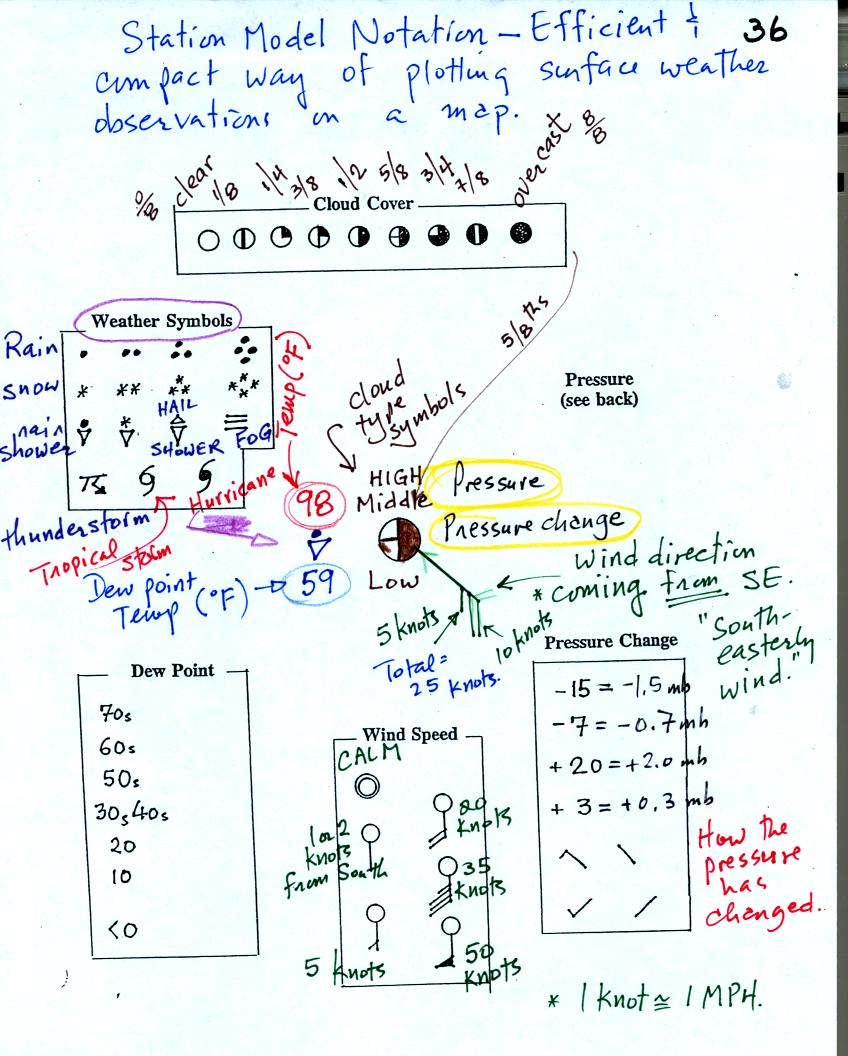 Station Model Notation — Efficient & 36
compact way of plotting surface weather
observations on a map.
0/8 clear 1/8 1/4 3/8 1/2 5/8 3/4 7/8 overcast 8/8
Cloud Cover
5/8 ths
Weather Symbols
Rain
Snow
HAIL
rain
shower
SHOWER
FOG
Temp (°F)
cloud
type
symbols
Pressure
(see back)
Hurricane
thunderstorm
Tropical
storm
98
HIGH
Middle
Pressure
Pressure change
Dew point
Temp (°F)
59
Low
Wind direction
* coming from SE.
"South-
easterly
wind."
5 knots
10 knots
Total =
25 knots.
Dew Point
70s
60s
50s
30s 40s
20
10
<0
Wind Speed
CALM
20
knots
1 or 2
knots
from South
35
knots
5 knots
50
knots
Pressure Change
-15 = -1.5 mb
-7 = -0.7 mb
+20 = +2.0 mb
+3 = +0.3 mb
How the
pressure
has
changed.
* 1 knot ≅ 1 MPH.